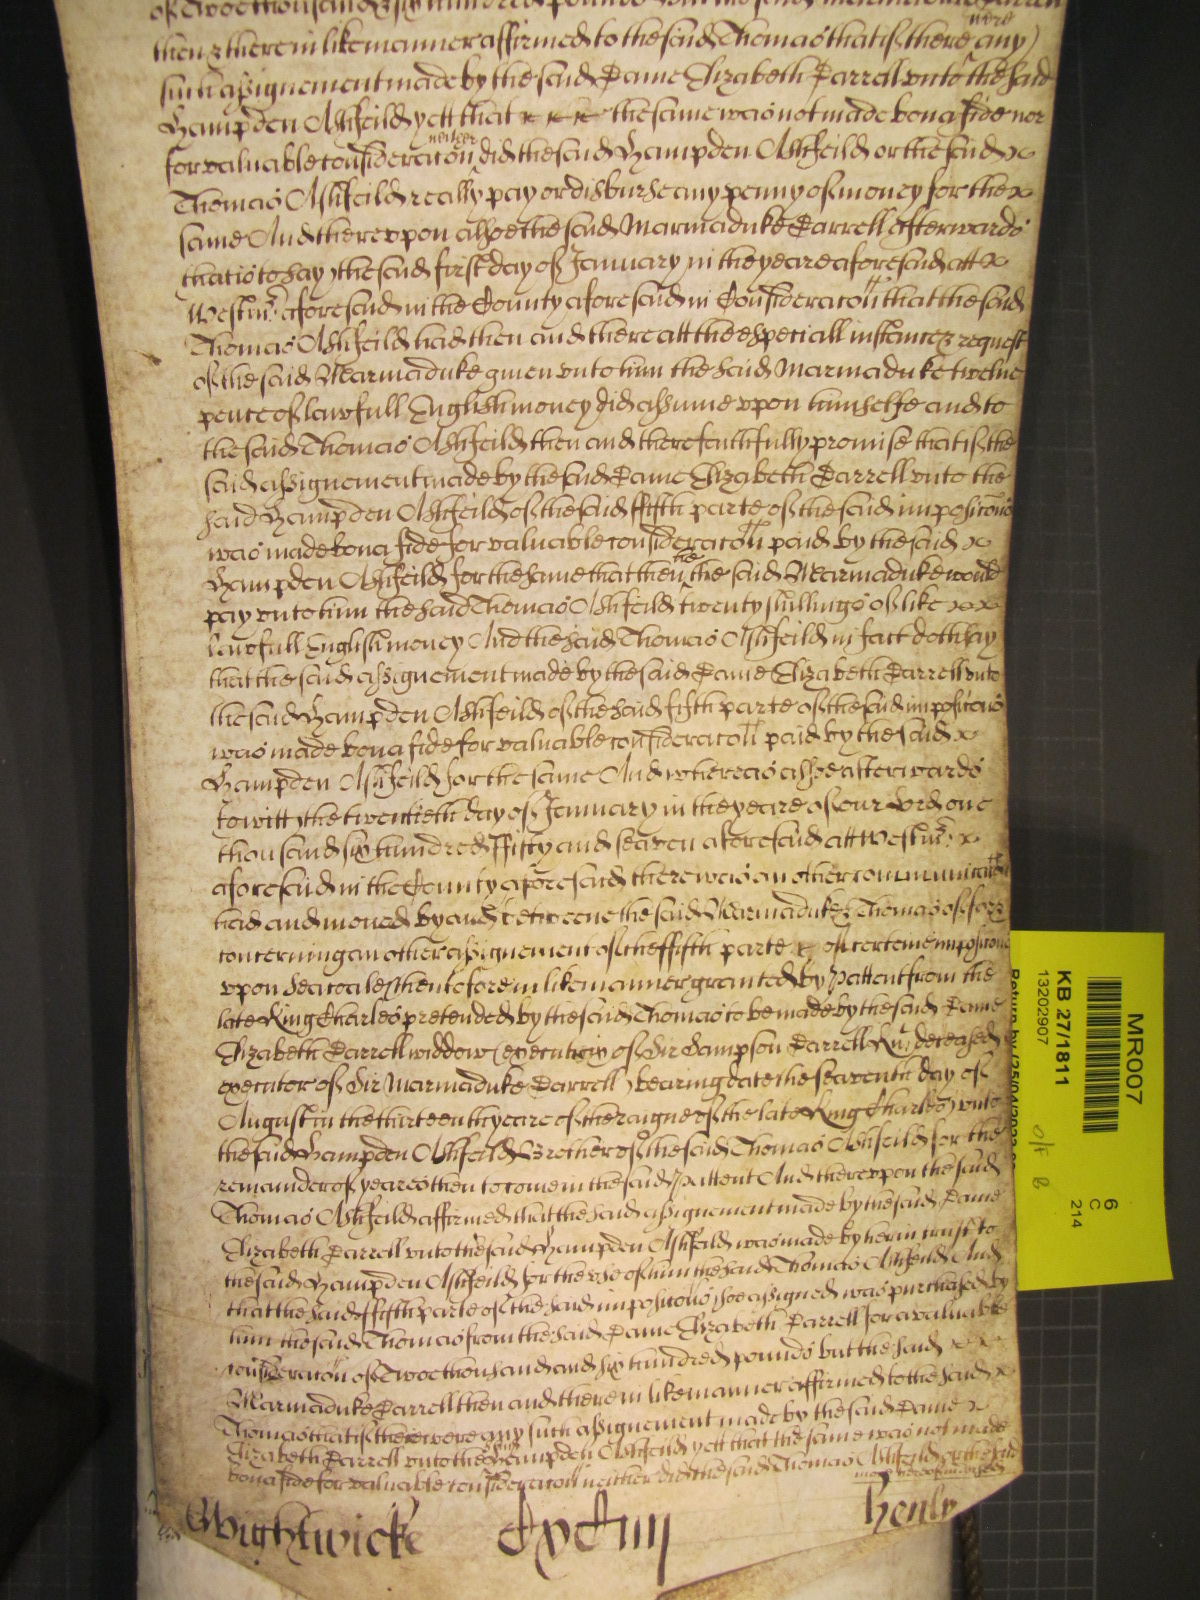 of Twoe thousand & six hundred pounds
then & there in like manner affirmed to the said Thomas that if there were any
such assignement made by the said Dame Elizabeth Darrell unto the said
Hampden Ashfeild yett that the same was not made bona fide nor
for valuable consideracon neither did the said Hampden Ashfeild or the said
Thomas Ashfeild really pay or disburse any penny of money for the
same And thereupon alsoe the said Marmaduke Darrell afterwards
that is to say the said first day of January in the yeare aforesaid att
Westmr. aforesaid in the County aforesaid in Consideracon that the said
Thomas Ashfeild had then and there att the especiall instance & request
of the said Marmaduke given unto him the said Marmaduke twelve
pence of lawfull English money did assume upon himselfe and to
the said Thomas Ashfeild then and there faithfully promise that if the
said assignement made by the said Dame Elizabeth Darrell unto the
said Hampden Ashfeild of the said ffifth parte of the said imposicons
was made bona fide for valuable consideracon paid by the said
Hampden Ashfeild for the same that then he the said Marmaduke would
pay unto him the said Thomas Ashfeild twenty shillings of like
lawfull English money And the said Thomas Ashfeild in fact doth say
that the said assignement made by the said Dame Elizabeth Darrell unto
the said Hampden Ashfeild of the said fifth parte of the said imposicons
was made bona fide for valuable consideracon paid by the said
Hampden Ashfeild for the same And whereas alsoe afterwards
to witt the twentieth day of January in the yeare of our Lord one
thousand six hundred ffifty and seaven aforesaid att Westmr.
aforesaid in the County aforesaid there was an other communicacon
had and moved by and betweene the said Marmaduke & Thomas of & for
concerning an other assignement of the ffifth parte of certeine imposicons
upon Seacoales thentofore in like manner granted by Pattent from the
late King Charles pretended by the said Thomas to be made by the said Dame
Elizabeth Darrell widdow executrix of Sir Sampson Darrell Knt. deceased
executor of Sir Marmaduke Darrell bearing date the seaventh day of
August in the thirteenth yeare of the raigne of the late King Charles unto
the said Hampden Ashfeild Brother of the said Thomas Ashfeild for the
remainder of yeares then to come in the said Pattent And thereupon the said
Thomas Ashfeild affirmed that the said assignement made by the said Dame
Elizabeth Darrell unto the said Hampden Ashfeild was made by her in trust to
the said Hampden Ashfeild for the use of him the said Thomas Ashfeild And
that the said ffifth parte of the said imposicons soe assigned was purchased by
him the said Thomas from the said Dame Elizabeth Darrell for a valuable
consideracon of Twoe thousand and six hundred pounds but the said
Marmaduke Darrell then and there in like manner affirmed to the said
Thomas that if there were any such assignement made by the said Dame
Elizabeth Darrell unto the said Hampden Ashfeild yett that the same was not made
bona fide for valuable consideracon neither did the said Thomas Ashfeild or the said
Wightwicke
Henly
MR007
KB 27/1811
13202907
6
C
214